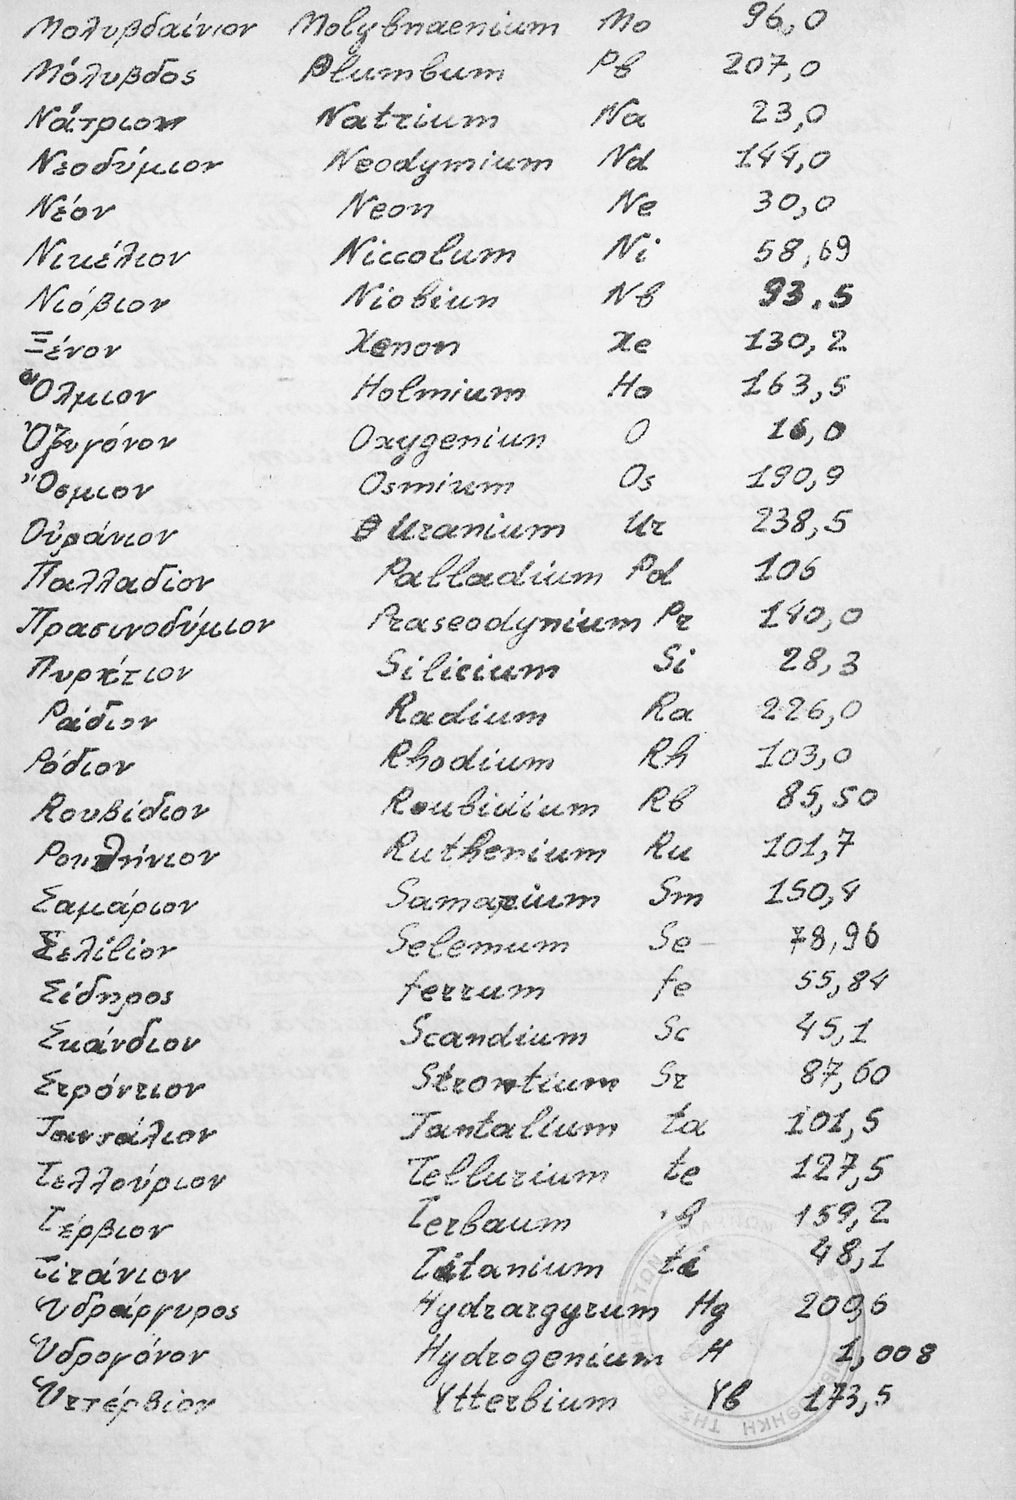 Μολυβδαίνιον Molybnaenium Mo 96,0
Μόλυβδος Plumbum Pb 207,0
Νάτριον Natrium Na 23,0
Νεοδύμιον Neodymium Nd 144,0
Νέον Neon Ne 30,0
Νικέλιον Niccolum Ni 58,69
Νιόβιον Niobiun Nb 93.5
Ξένον Xenon Xe 130,2
Ὄλμιον Holmium Ho 163,5
Ὀξυγόνον Oxygeniun O 16,0
Ὄσμιον Osmium Os 190,9
Οὐράνιον Uranium Ur 238,5
Παλλαδίον Palladium Pd 106
Πρασινοδύμιον Praseodynium Pr 140,0
Πυρίτιον Silicium Si 28,3
Ράδιον Radium Ra 226,0
Ρόδιον Rhodium Rh 103,0
Rουβίδιον Roubidium Rb 85,50
Ρουθήνιον Ruthenium Ru 101,7
Σαμάριον Samarium Sm 150,4
Selemum Se 78,96
Σίδηρος ferrum fe 55,84
Σκάνδιον Scandium Sc 45,1
Στρόντιον Strontium Sr 87,60
Ταντάλιον Tantalium ta 101,5
Τελλούριον Tellurium te 127,5
Τέρβιον Terbaum 159,2
Τιτάνιον Titanium ti 48,1
Ὑδράργυρος Hydrargyrum Hg 200,6
Ὑδρογόνον Hydrogenium H 1,008
Ὑττέρβιον Ytterbium Yb 173,5